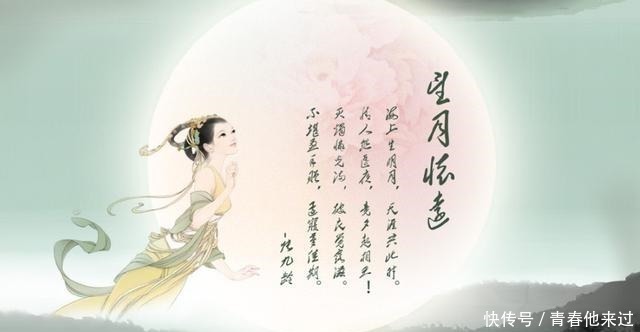 望月怀远
海上生明月，天涯共此时。
情人怨遥夜，竟夕起相思！
灭烛怜光满，披衣觉露滋。
不堪盈手赠，还寝梦佳期。
-张九龄
快传号 / 青春他来过